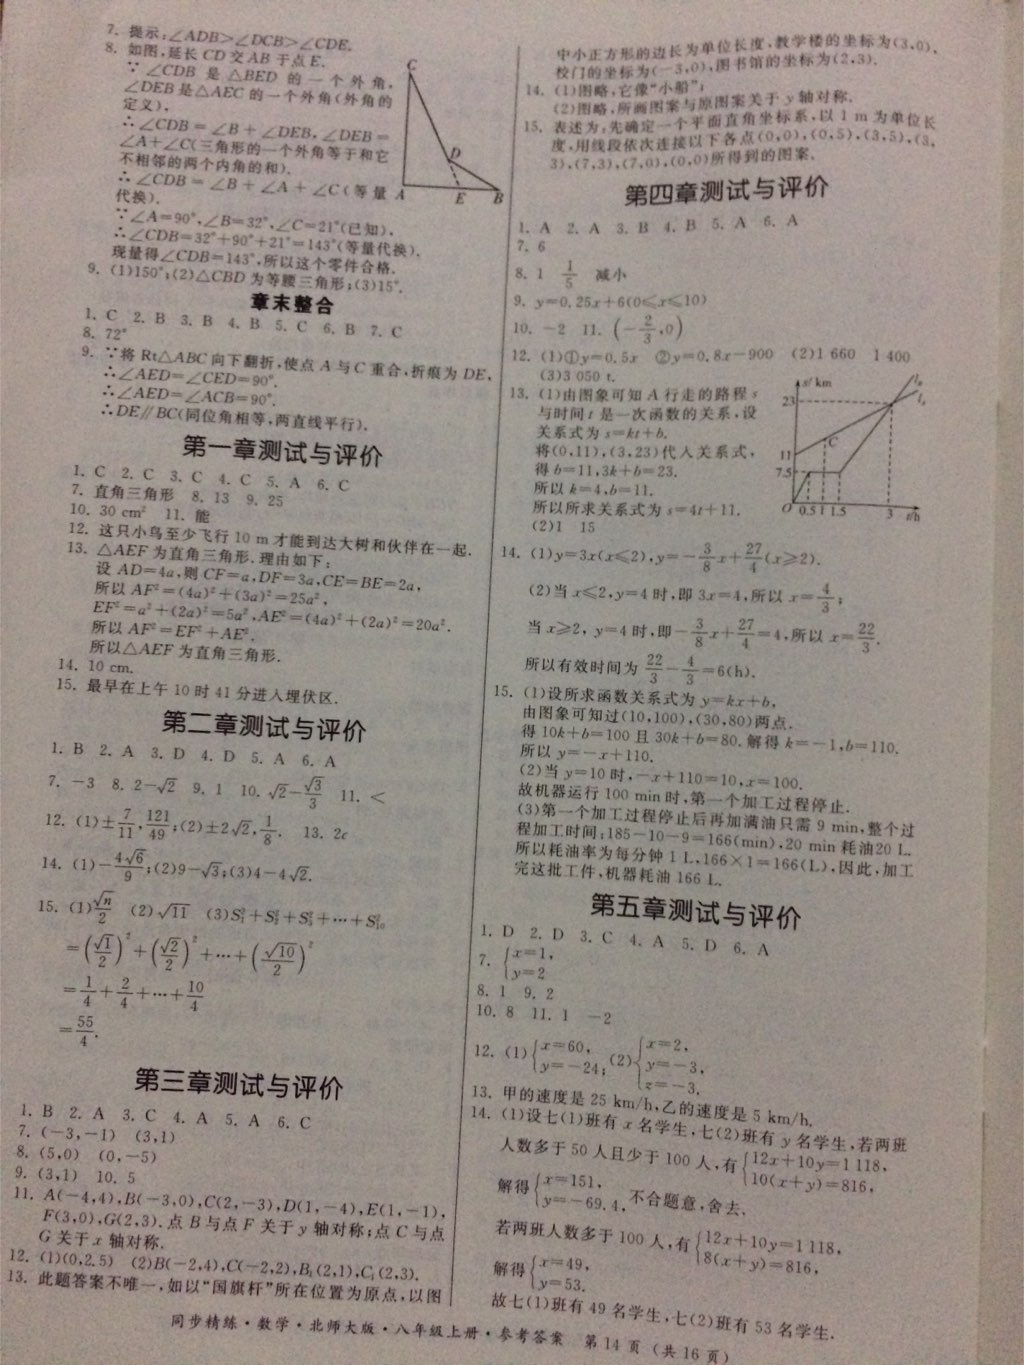 7. 提示:∠ADB>∠DCB>∠CDE.
8. 如图,延长 CD 交 AB 于点 E.
∵ ∠CDB 是 △BED 的一个外角,
∠DEB 是△AEC 的一个外角(外角的
定义),
∴∠CDB=∠B+∠DEB,∠DEB=
∠A+∠C(三角形的一个外角等于和它
不相邻的两个内角的和).
∴∠CDB=∠B+∠A+∠C(等量
代换).
∵∠A=90°,∠B=32°,∠C=21°(已知),
∴∠CDB=32°+90°+21°=143°(等量代换).
现量得∠CDB=143°,所以这个零件合格.
C
D
A E B
9. (1)150°;(2)△CBD 为等腰三角形;(3)15°.
章末整合
1. C 2. B 3. B 4. B 5. C 6. B 7. C
8. 72°
9. ∵将 Rt△ABC 向下翻折,使点 A 与 C 重合,折痕为 DE,
∴∠AED=∠CED=90°.
∴∠AED=∠ACB=90°.
∴DE∥BC(同位角相等,两直线平行).
第一章测试与评价
1. C 2. C 3. C 4. C 5. A 6. C
7. 直角三角形 8. 13 9. 25
10. 30 cm² 11. 能
12. 这只小鸟至少飞行 10 m 才能到达大树和伙伴在一起.
13. △AEF 为直角三角形. 理由如下:
设 AD=4a,则 CF=a,DF=3a,CE=BE=2a,
所以 AF²=(4a)²+(3a)²=25a²,
EF²=a²+(2a)²=5a²,AE²=(4a)²+(2a)²=20a².
所以 AF²=EF²+AE².
所以△AEF 为直角三角形.
14. 10 cm.
15. 最早在上午 10 时 41 分进入埋伏区.
第二章测试与评价
1. B 2. A 3. D 4. D 5. A 6. A
7. -3 8. 2-√2 9. 1 10. √2-√3/3 11. <
12. (1)±7/11,121/49;(2)±2√2,1/8. 13. 2c
14. (1)-4√6/9;(2)9-√3;(3)4-4√2.
15. (1)√n/2 (2)√11 (3)S₁²+S₂²+S₃²+…+S₁₀²
=(√1/2)²+(√2/2)²+…+(√10/2)²
=1/4+2/4+…+10/4
=55/4.
第三章测试与评价
1. B 2. A 3. C 4. A 5. A 6. C
7. (-3,-1) (3,1)
8. (5,0) (0,-5)
9. (3,1) 10. 5
11. A(-4,4),B(-3,0),C(2,-3),D(1,-4),E(1,-1),
F(3,0),G(2,3). 点 B 与点 F 关于 y 轴对称;点 C 与点
G 关于 x 轴对称.
12. (1)(0,2.5) (2)B(-2,4),C(-2,2),B₁(2,1),C₁(2,3).
13. 此题答案不唯一,如以“国旗杆”所在位置为原点,以图
中小正方形的边长为单位长度,教学楼的坐标为(3,0),
校门的坐标为(-3,0),图书馆的坐标为(2,3).
14. (1)图略,它像“小船”;
(2)图略,所画图案与原图案关于 y 轴对称.
15. 表述为:先确定一个平面直角坐标系,以 1 m 为单位长
度,用线段依次连接以下各点(0,0),(0,5),(3,5),(3,
3),(7,3),(7,0),(0,0)所得到的图案.
第四章测试与评价
1. A 2. A 3. B 4. B 5. A 6. A
7. 6
8. 1 1/5 减小
9. y=0.25x+6(0≤x≤10)
10. -2 11. (-2/3,0)
12. (1)①y=0.5x ②y=0.8x-900 (2)1 660 1 400
(3)3 050 t.
13. (1)由图象可知 A 行走的路程 s
与时间 t 是一次函数的关系,设
关系式为 s=kt+b.
将(0,11),(3,23)代入关系式,
得 b=11,3k+b=23.
所以 k=4,b=11.
所以所求关系式为 s=4t+11.
(2)1 15
s/km
23
11
7.5
C
O 0.5 1 1.5 3 t/h
14. (1)y=3x(x≤2),y=-3/8x+27/4(x≥2).
(2)当 x≤2,y=4 时,即 3x=4,所以 x=4/3;
当 x≥2, y=4 时,即-3/8x+27/4=4,所以 x=22/3.
所以有效时间为 22/3-4/3=6(h).
15. (1)设所求函数关系式为 y=kx+b,
由图象可知过(10,100),(30,80)两点.
得 10k+b=100 且 30k+b=80. 解得 k=-1,b=110.
所以 y=-x+110.
(2)当 y=10 时,-x+110=10,x=100.
故机器运行 100 min 时,第一个加工过程停止.
(3)第一个加工过程停止后再加满油只需 9 min,整个过
程加工时间:185-10-9=166(min),20 min 耗油20 L.
所以耗油率为每分钟 1 L,166×1=166(L),因此,加工
完这批工件,机器耗油 166 L.
第五章测试与评价
1. D 2. D 3. C 4. A 5. D 6. A
7. {x=1,
y=2
8. 1 9. 2
10. 8 11. 1 -2
12. (1){x=60, y=-24; (2){x=2, y=-3, z=-3.
13. 甲的速度是 25 km/h,乙的速度是 5 km/h.
14. (1)设七(1)班有 x 名学生,七(2)班有 y 名学生,若两班
人数多于 50 人且少于 100 人,有{12x+10y=1 118, 10(x+y)=816,
解得{x=151, y=-69.4, 不合题意,舍去.
若两班人数多于 100 人,有{12x+10y=1 118, 8(x+y)=816,
解得{x=49, y=53.
故七(1)班有 49 名学生,七(2)班有 53 名学生.
同步精练·数学·北师大版·八年级上册·参考答案 第 14 页 (共 16 页)